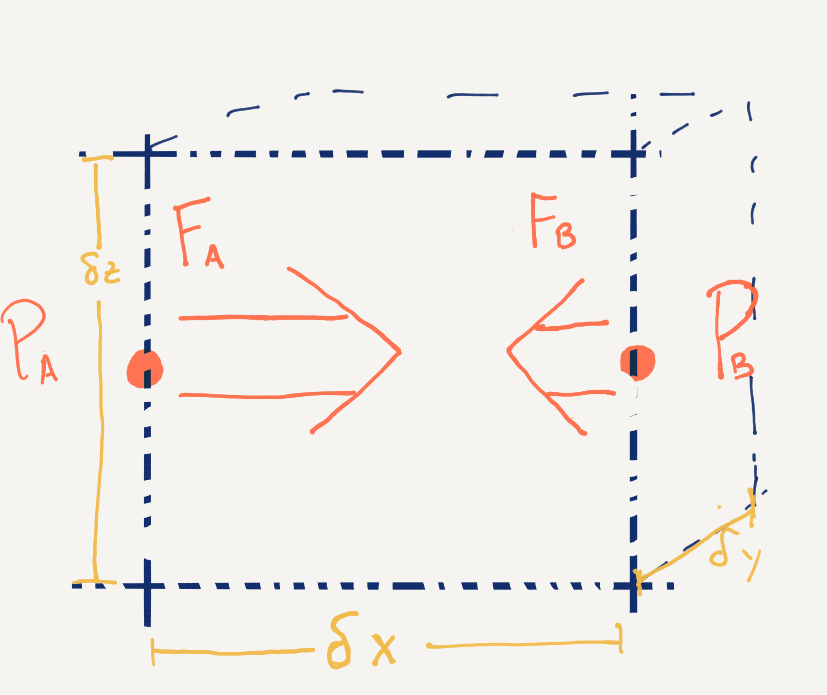 F_A
F_B
δz
P_A
P_B
δy
δx